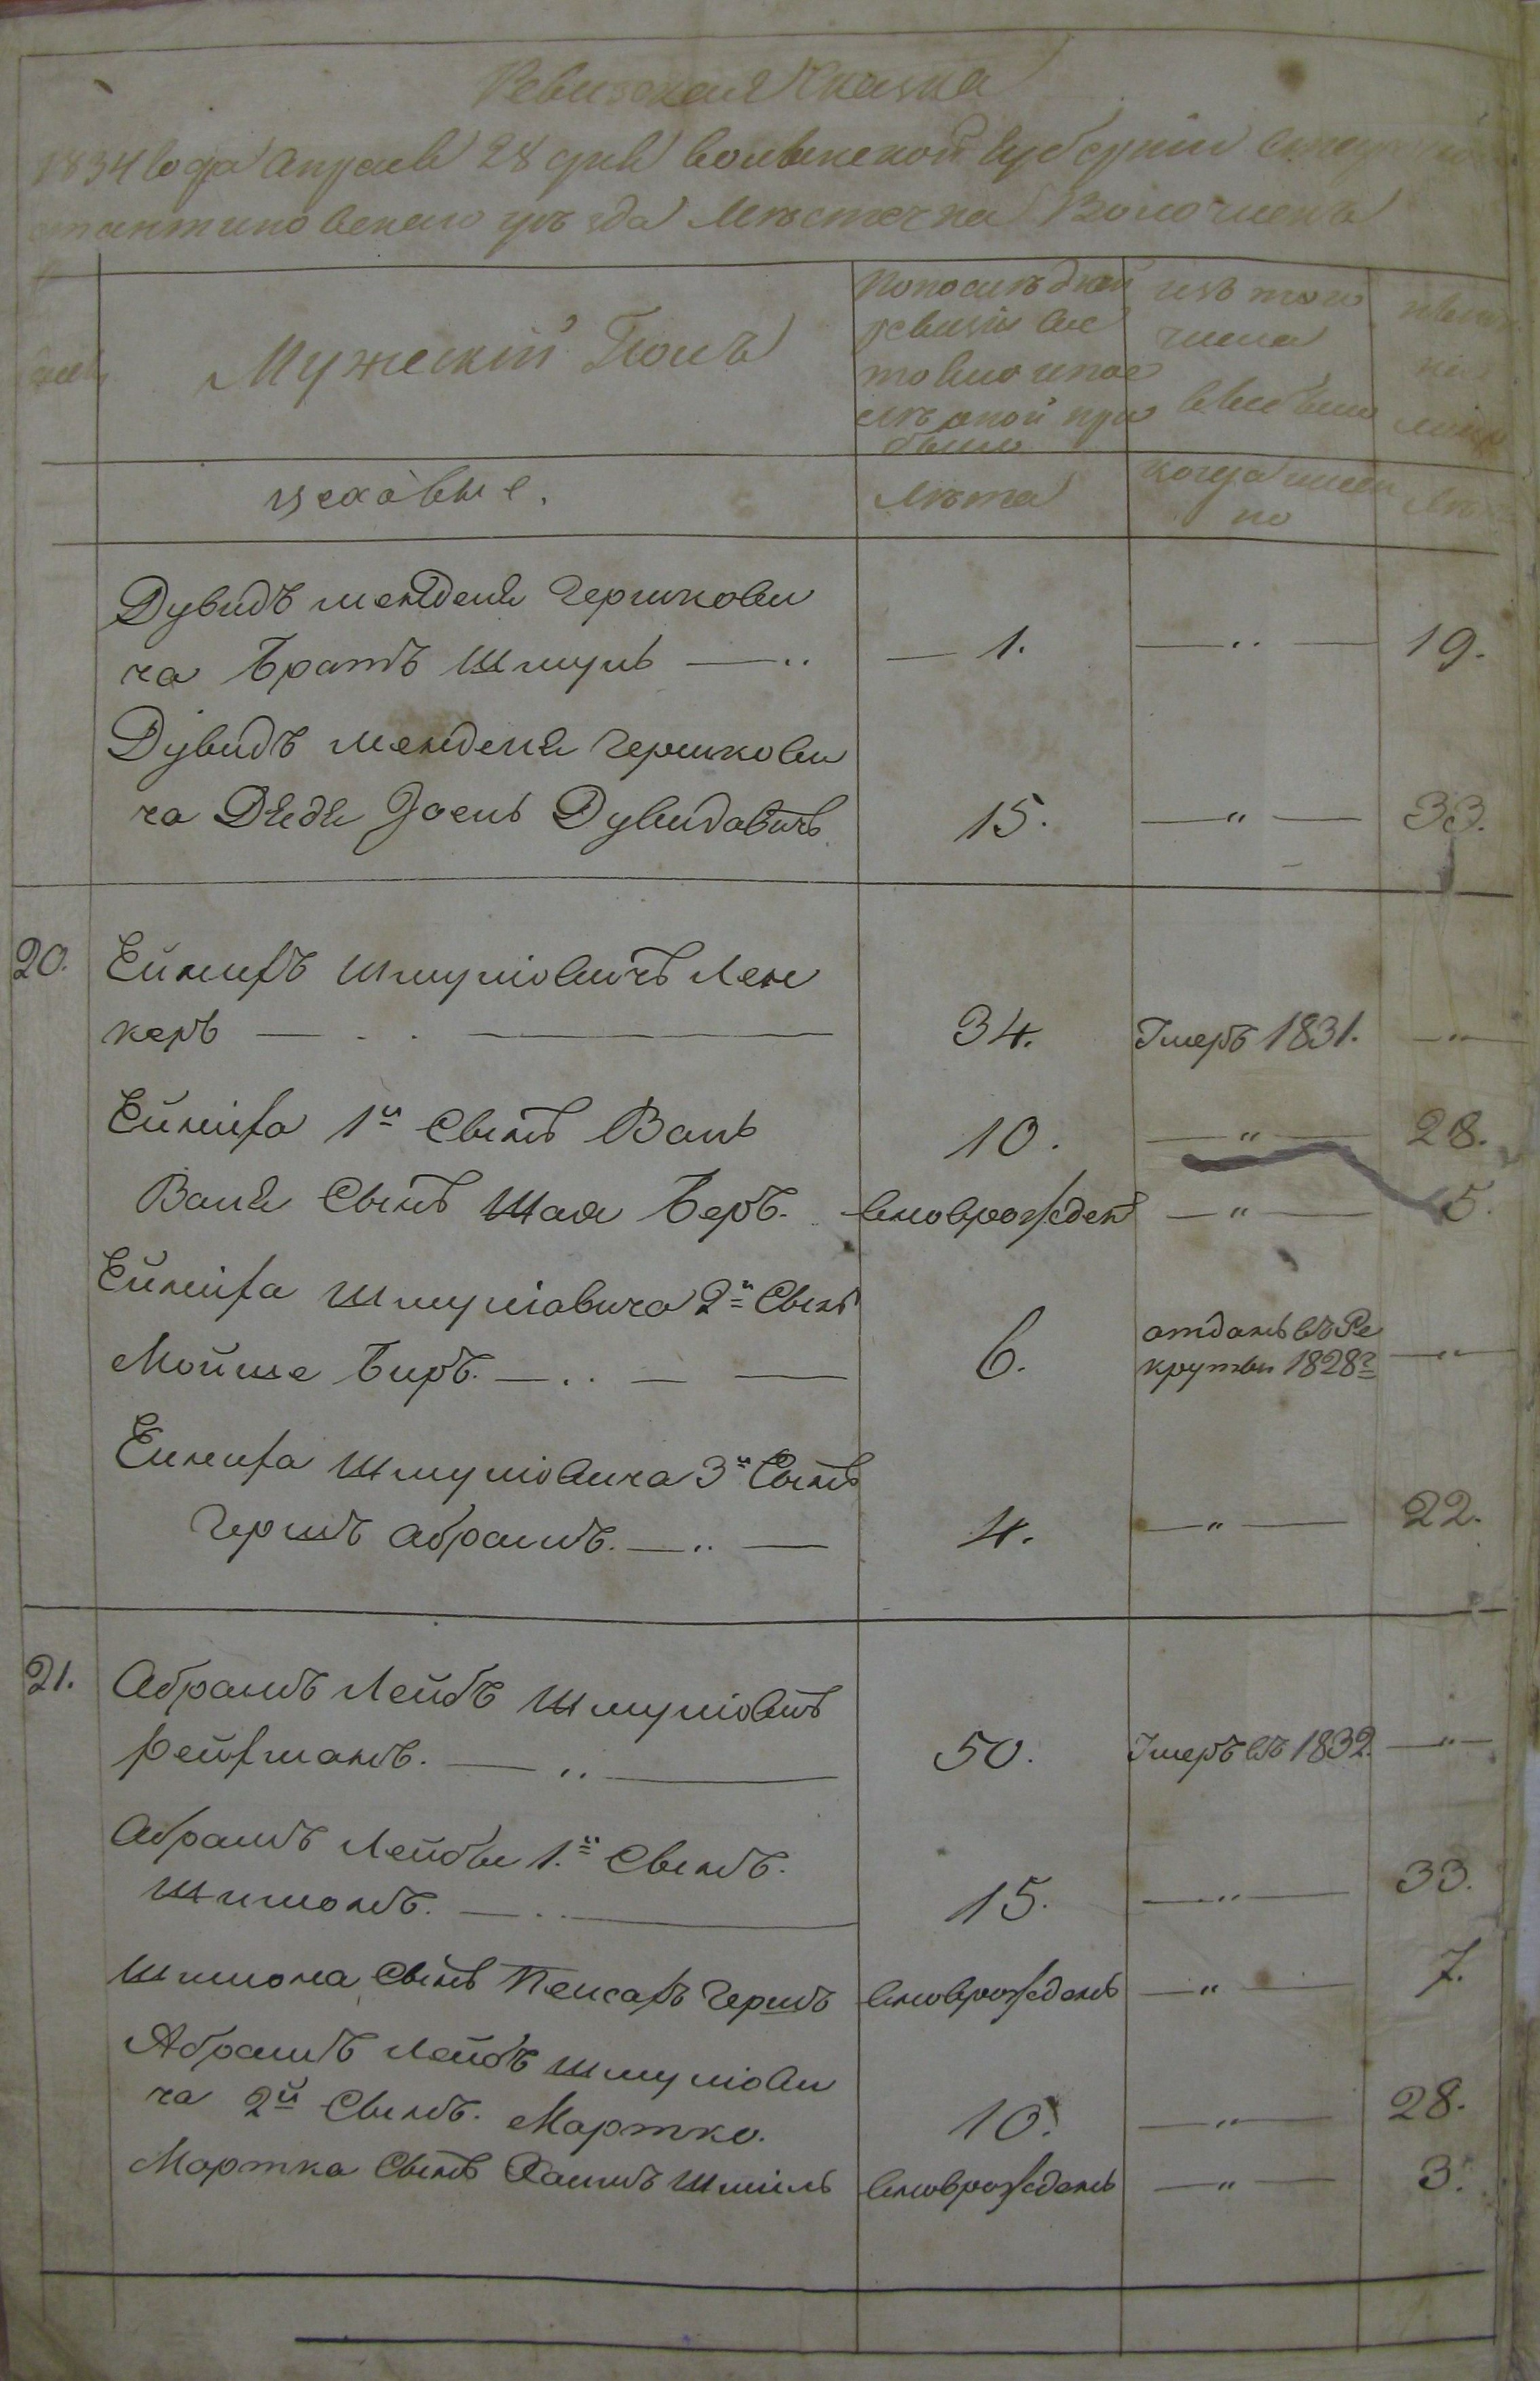 Ревизская Сказка
1834 года Апреля 28 дня Волынской Губернии Старо
константиновского уѣзда Мѣстечка Волочиекъ
Мужескій Полъ
По последней
ревизіи со
стояло и пос
лѣ оной при
было
изъ того
числа
выбыло
цеховые.
лѣта
когда имен
но
Дувидъ менделя Гершкови
ча Братъ Шмуль — 1. — 19.
Дувидъ Менделя Гершкови
ча Дядя Іосель Дувидовичъ 15. — 33.
20. Ейнихъ Шмуліовичъ Лен
керъ — 34. Умеръ 1831. —
Ейниха 1й Сынъ Волъ 10. — 28.
Воля Сынъ Шая Беръ. вновь рожден — 5.
Ейниха Шмуліовича 2й Сынъ
Мойше Биръ. — 6. отданъ въ Ре
круты 1828г —
Ейниха Шмуліовича 3й Сынъ
Гершъ Абрамъ. — 4. — 22.
21. Абрамъ Лейбъ Шмуліовичъ
Рейхманъ. — 50. Умеръ въ 1832. —
Абрамъ Лейбы 1й Сынъ.
Шимонъ. — 15. — 33.
Шимона Сынъ Пейсахъ Гершъ вновь рожденъ — 7.
Абрамъ Лейбъ Шмуліови
ча 2й Сынъ. Мортко. 10. — 28.
Мортка Сынъ Хаимъ Шміль вновь рожденъ — 3.